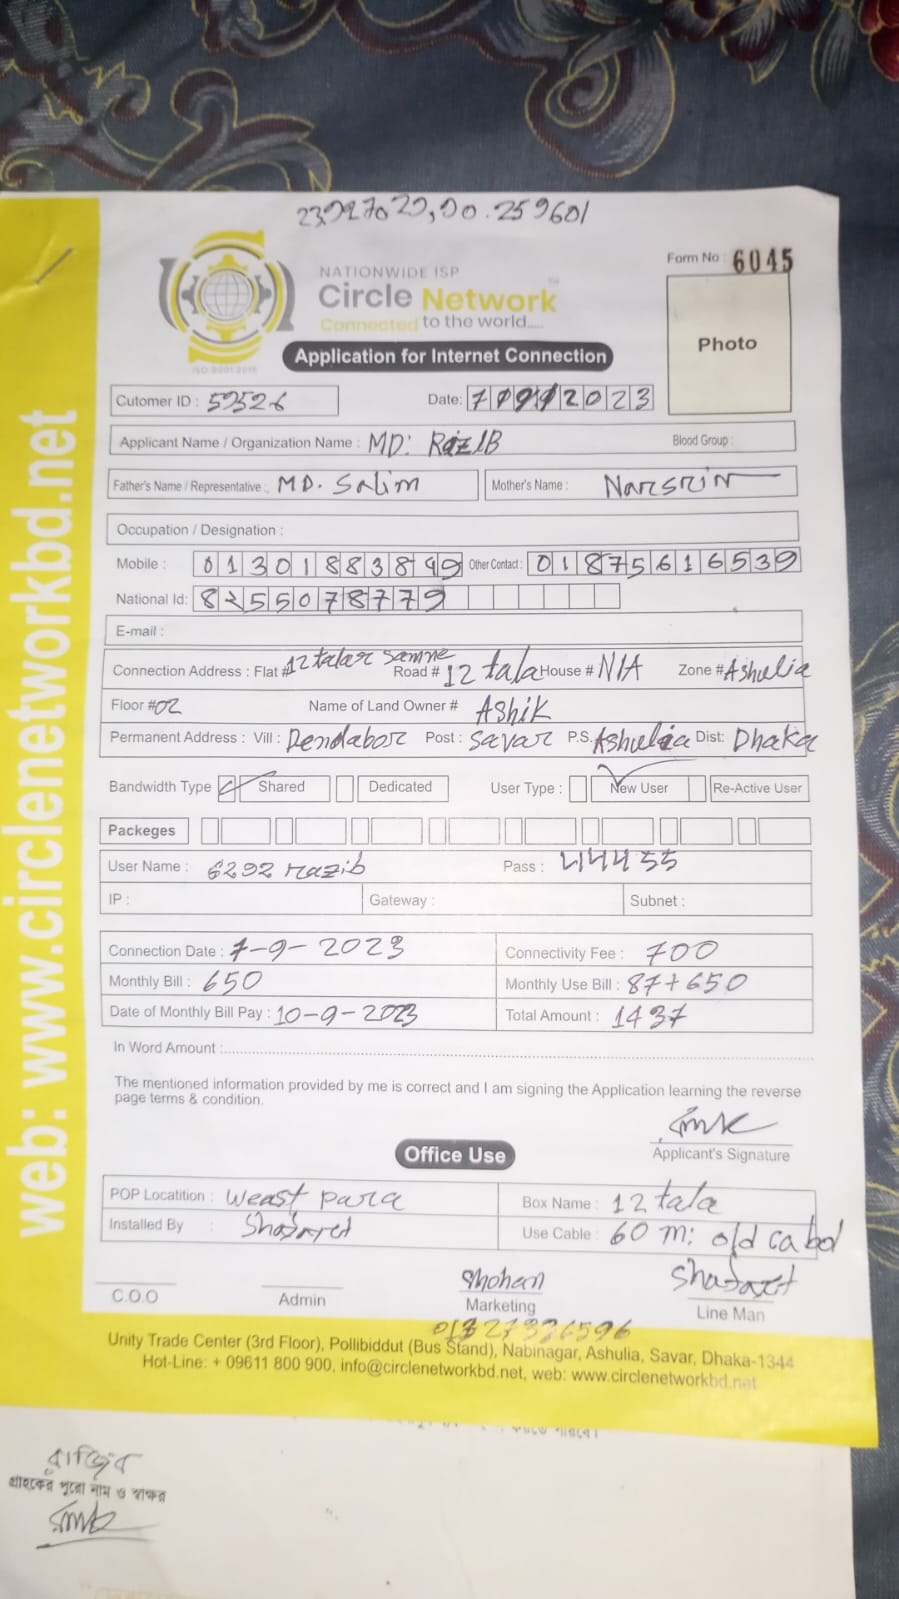 Form No : 6045
NATIONWIDE ISP
Circle Network
Connected to the world.....
ISO 9001:2015
Application for Internet Connection
Photo
Cutomer ID :
Date: 2023
Applicant Name / Organization Name : MD: RAZIB Blood Group :
Father's Name / Representative : MD. Salim Mother's Name : Narsrin
Occupation / Designation :
Mobile : 01301883899 Other Contact : 01875616539
National Id: 8255078779
E-mail :
Connection Address : Flat # 12 talar samne Road # 12 tala House # N/A Zone # Ashulia
Floor # 02 Name of Land Owner # Ashik
Permanent Address : Vill : Dendabor Post : Savar P.S. Ashulia Dist: Dhaka
Bandwidth Type Shared Dedicated User Type : New User Re-Active User
Packeges
User Name : 6292 razib Pass :
IP : Gateway : Subnet :
Connection Date : 7-9-2023 Connectivity Fee : 700
Monthly Bill : 650 Monthly Use Bill : 87+650
Date of Monthly Bill Pay : 10-9-2023 Total Amount : 1437
In Word Amount :
The mentioned information provided by me is correct and I am signing the Application learning the reverse
page terms & condition.
Applicant's Signature
Office Use
POP Locatition : Weast para Box Name : 12 tala
Installed By : Use Cable : 60 m: old cabol
Shohan
C.O.O Admin Marketing Line Man
Unity Trade Center (3rd Floor), Pollibiddut (Bus Stand), Nabinagar, Ashulia, Savar, Dhaka-1344
Hot-Line: + 09611 800 900, info@circlenetworkbd.net, web: www.circlenetworkbd.net
web: www.circlenetworkbd.net
রাজিব
গ্রাহকের পুরো নাম ও স্বাক্ষর